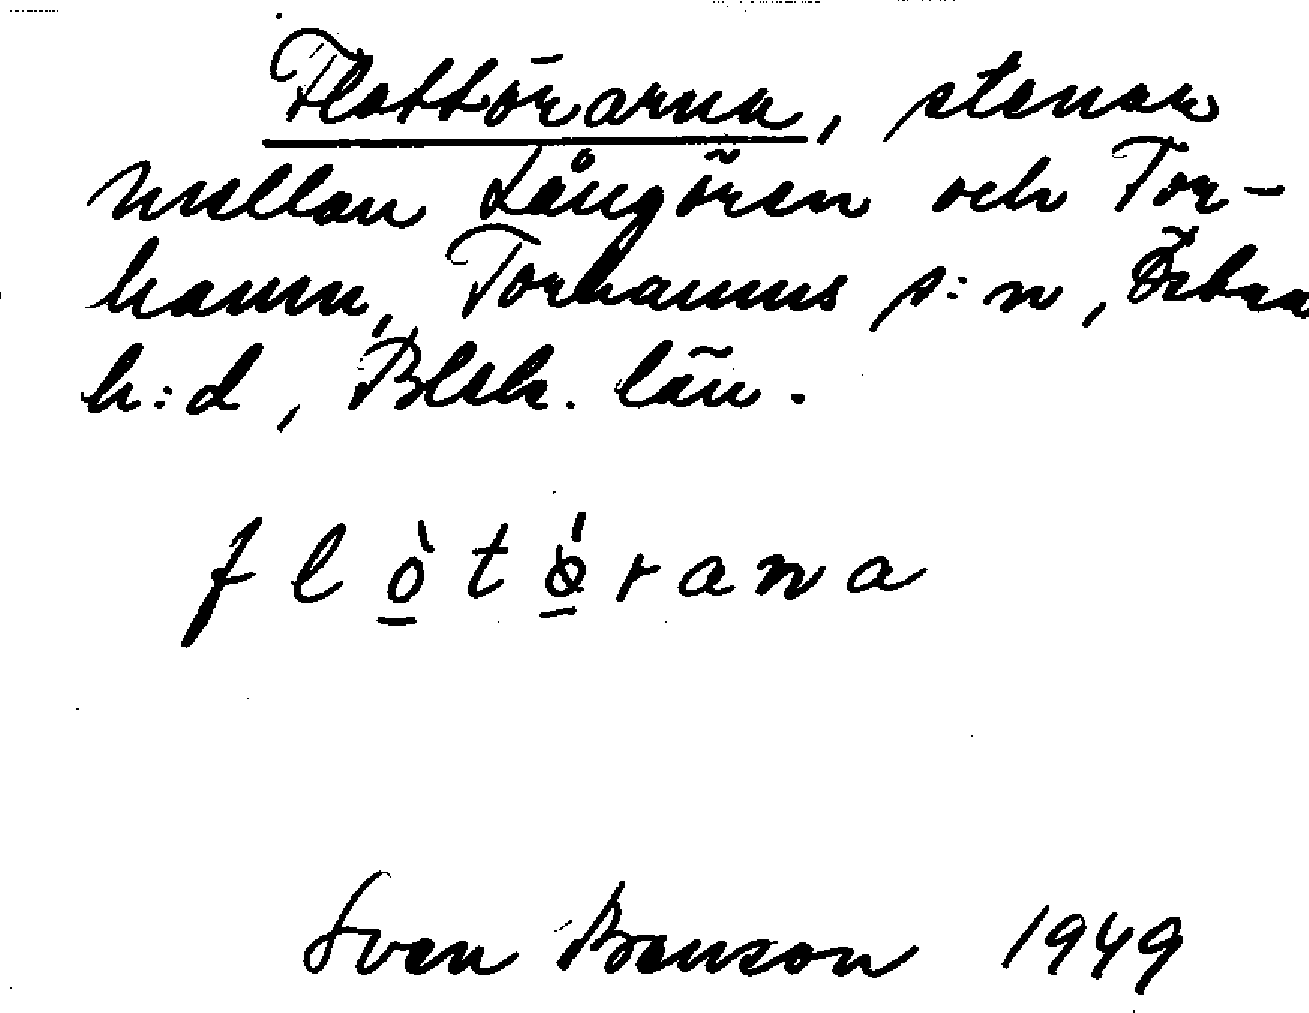 Flottörarna, stenar
mellan Långören och Tor-
hamn, Torhamns s:n, Östra
h:d, Blek. län.
f l ò t ǿ r a n a
Sven Benson 1949